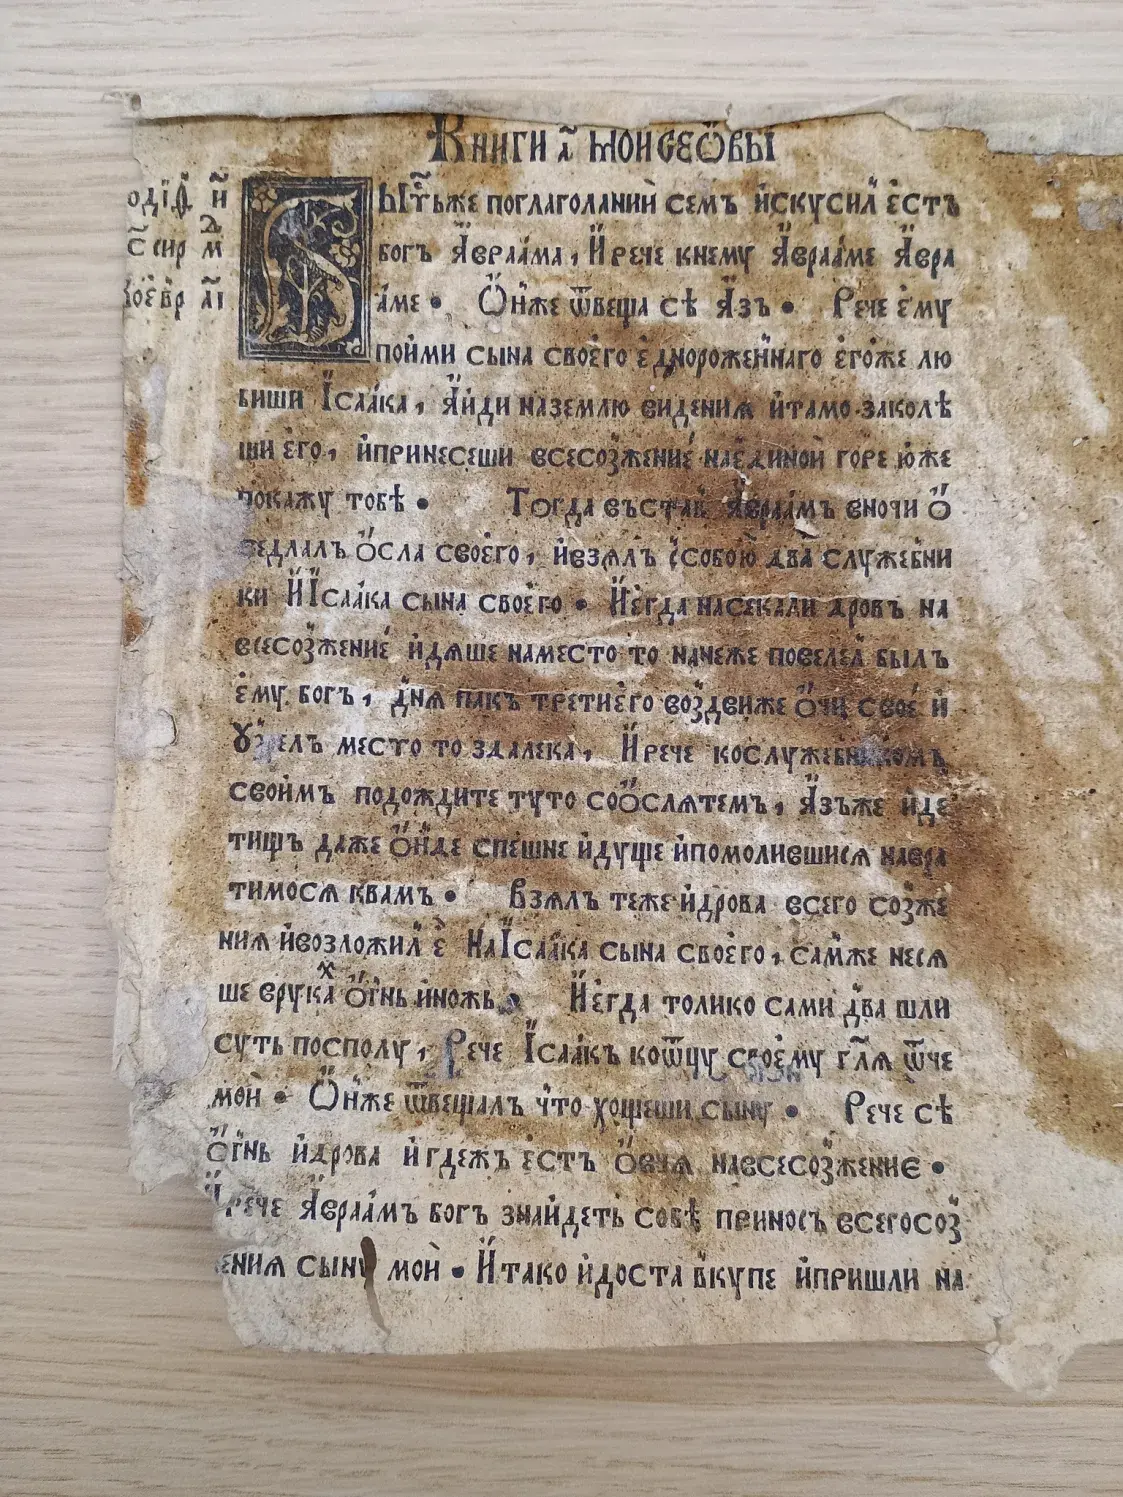 Книги а҃ моисеѡвы
Бы́ть же поглаголаний семъ и҆скусил е҆стъ
богъ А҆враа́ма, И҆ рече кнему А҆враа́ме А҆вра
а́ме • Ѻ҆н́же ѿвеща сѣ А҆зъ • Рече е҆му
пойми сына своего е҆днорожен́наго е҆гоже лю
биши І҆саа́ка, А҆и́ди наземлю видения и҆тамо заколѣ
ши е҆го, и҆принесеши всесозжение наединой горе ю҆же
покажу тобѣ • Тогда въстав А҆враа́мъ вночи Ѻ҆
седлалъ Ѻ҆сла своего, и҆взялъ ссобою два служебни
ки И҆ І҆саа́ка сына своего • И҆е҆гда насекали дровъ на
всесозжение и҆дяше наместо то наче́же повелел былъ
е҆му богъ, дня пакъ третиего воздвиже Ѻ҆чи свое и҆
Узрелъ место то здалека, И҆ рече кослужебникомъ
своимъ подождите туто соѺ҆слятемъ, А҆зъже и҆ де
тищъ даже Ѻ҆нде спешне и҆дуще и҆помолившися навра
тимося квамъ • Взялъ теже и҆дрова всего созже
ния и҆возложил е҆ На І҆саа́ка сына своего, самже нося
ше врукаⷯ Ѻ҆гнь и҆ножь • И҆е҆гда толико сами два шли
суть посполу, Рече І҆саа́къ коѿцу своему гл҃я ѿче
мой • Ѻ҆н́же ѿвещалъ что хощеши сыну • Рече сѣ
Ѻ҆гнь и҆дрова и҆ гдежъ е҆стъ Ѻ҆вчя навсесозжение •
И҆ рече А҆враа́мъ богъ знайдеть собѣ приносъ всегосоз
ения сыну мой • И҆ тако и҆доста вкупе и҆пришли на